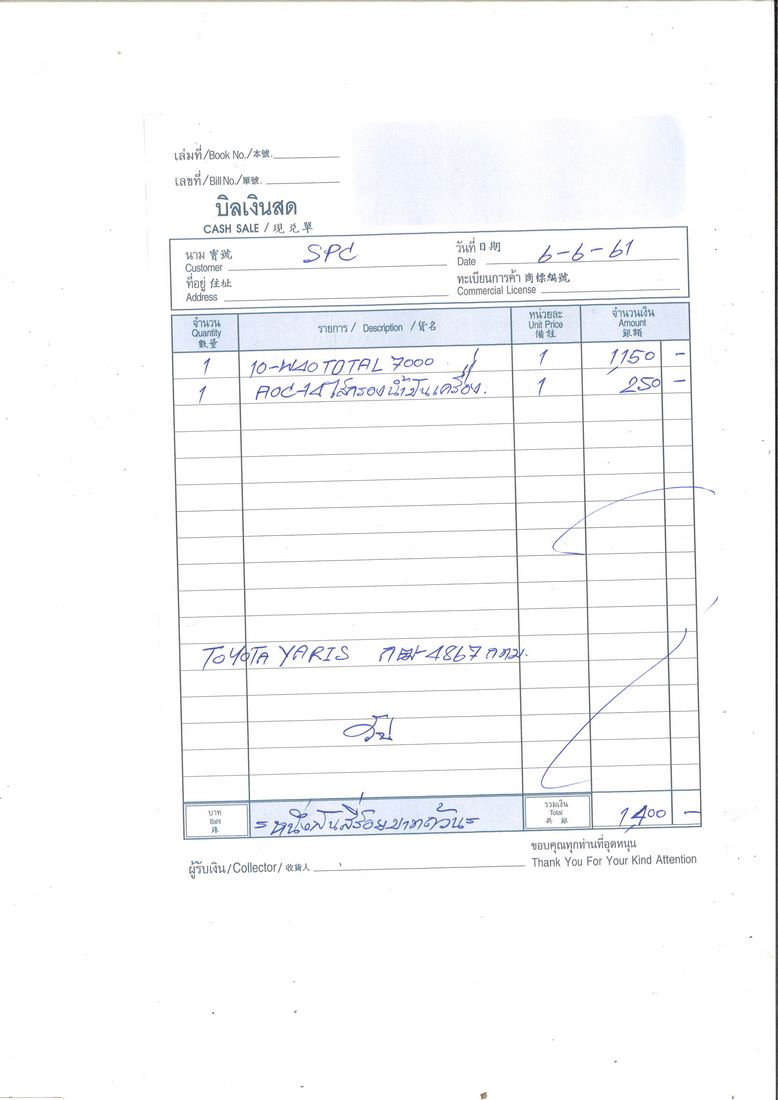 เล่มที่/Book No./本號.
เลขที่/Bill No./單號.
บิลเงินสด
CASH SALE / 現兑單
นาม 寳號 SPC วันที่ 日期 6-6-61
Customer Date
ที่อยู่ 住址 ทะเบียนการค้า 商標編號
Address Commercial License
จำนวน รายการ / Description / 貨名 หน่วยละ จำนวนเงิน
Quantity Unit Price Amount
數量 備註 銀額
1 10-W40 TOTAL 7000 1 1,150 -
1 AOC-14 ไส้กรองน้ำมันเครื่อง. 1 250 -
TOYOTA YARIS 4867 กทม.
บาท รวมเงิน
Baht =หนึ่งพันสี่ร้อยบาทถ้วน= Total 1,400 -
銖 共銀
ขอบคุณทุกท่านที่อุดหนุน
ผู้รับเงิน/Collector/收貨人 Thank You For Your Kind Attention